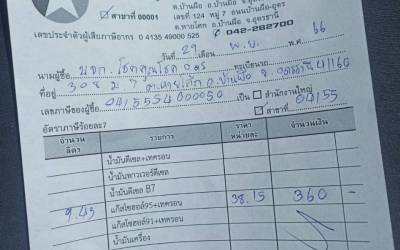 ต.บ้านผือ อ.บ้านผือ จ.อุดรธานี
☑ สาขาที่ 00001 เลขที่ 124 หมู่ 7 ถนนบ้านผือ-อุดร
ต.หายโศก อ.บ้านผือ จ.อุดรธานี
042-282700
เลขประจำตัวผู้เสียภาษีอากร 0 4135 49000 525
วันที่ 29 เดือน พ.ย. พ.ศ. 66
นามผู้ซื้อ หจก. โชคคูณโชค ทะเบียนรถ
ที่อยู่ 308 ม.7 ต.หายโศก อ.บ้านผือ จ.อุดรธานี 41160
เลขภาษีของผู้ซื้อ 0415554000050 เป็น ☐ สำนักงานใหญ่
☑ สาขาที่ 04155
อัตราภาษีร้อยละ 7
จำนวนลิตร รายการ ราคาหน่วยละ จำนวนเงิน
น้ำมันดีเซล+เทครอน
น้ำมันพาวเวอร์ดีเซล
น้ำมันดีเซล B7
9.43 แก๊สโซฮอล์95+เทครอน 38.15 360 -
แก๊สโซฮอล์91+เทครอน
น้ำมันเครื่อง